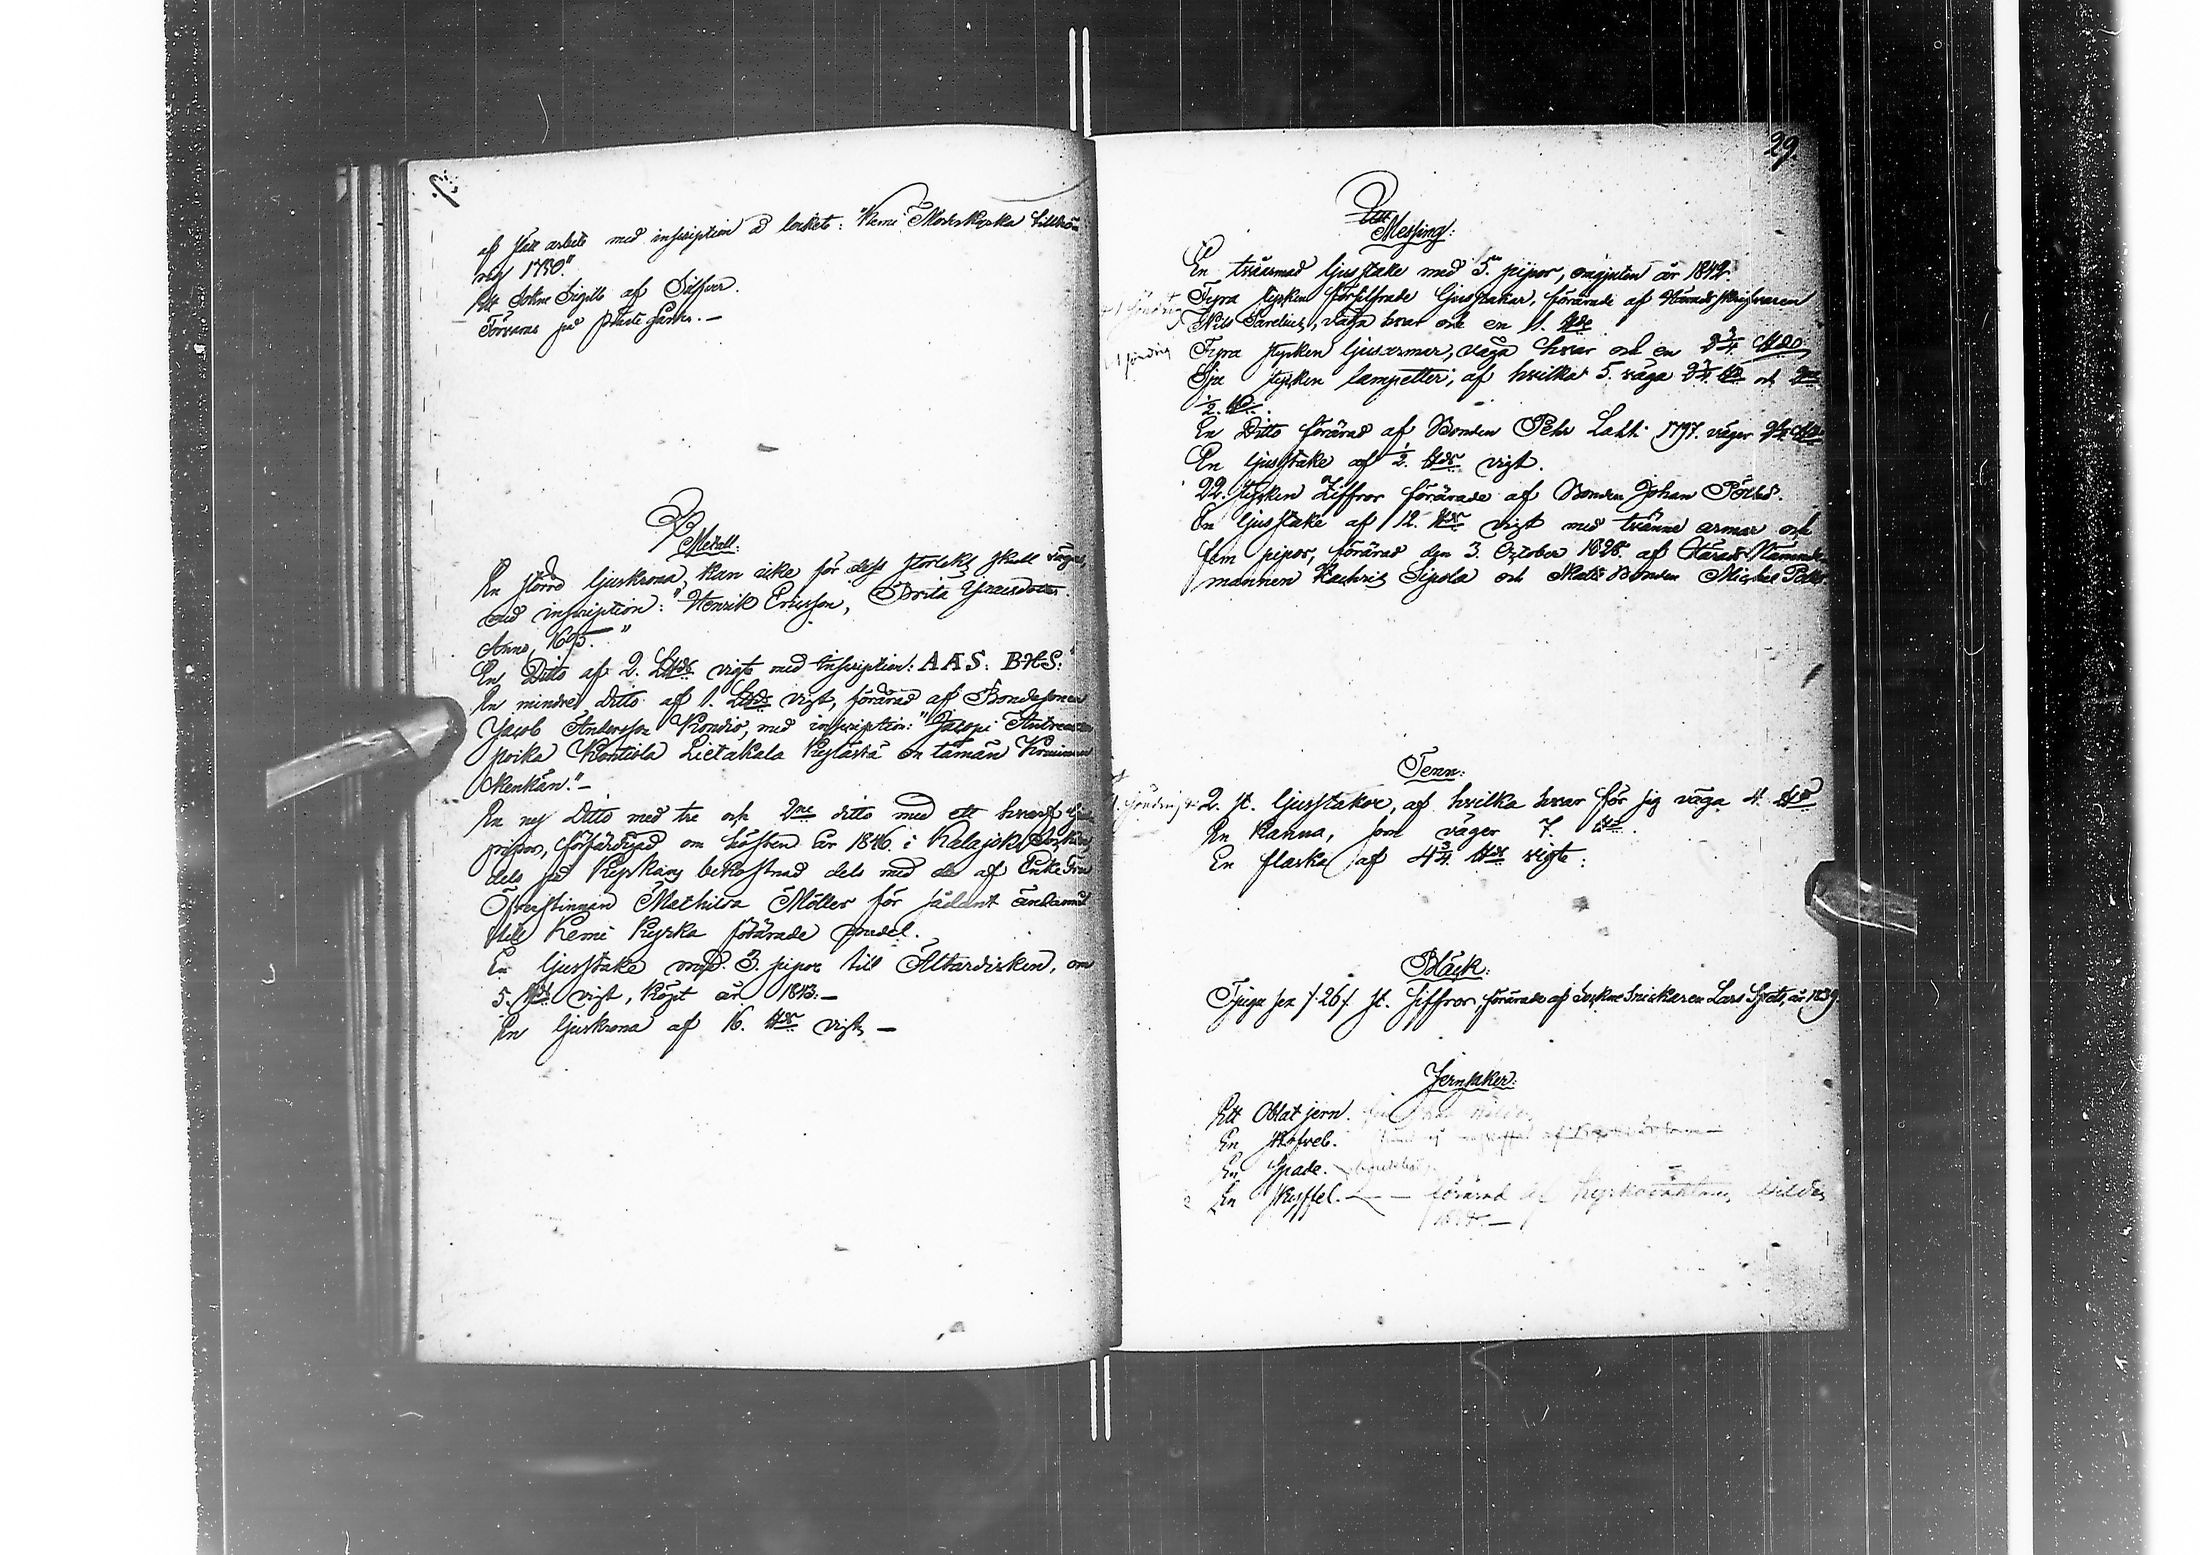 af slätt arbete med inscription å locket: "Kemi Moderkyrka tillhö-
rig 1750."
Ett Sokne Sigill af Silfver.
Förvaras på prästegården. —
Metall:
En större ljuskrona, kan icke för dess storleks skull vägas,
med inscription: "Henrik Ericsson, Brita
Anno 1695."
En Ditto af 2. L℔ vigt med inscription: AAS: BHS:
En mindre ditto af 1. L℔ vigt, förärad af Bondesonen
Jacob Andersson Kondio, med inscription: "Jacopi Antreanen
poika Kontiola Lietakala Kylästä on tämän Kruunun
skenkän." —
En ny Ditto med tre och 2ne ditto med ett hvarf
pipor, förfärdigad om hösten år 1846. i Kalajoki Socken,
dels på Kyrkans bekostnad dels med de af Enke Fru
Öfverstinnan Mathilda Möller för sådant ändamål
till Kemi Kyrka förärade medel.
En ljusstake med 3. pipor till Altardisken, om
5. ℔ vigt, köpt år 1843. —
En ljuskrona af 16. ℔ vigt. —
29.
Messing:
En tvåarmad ljusstake med 5. pipor, omgjuten år 1842.
Fyra stycken försilfrade ljusstakar, förärade af Häradsskrifvaren
Nils Sarelius, väga hvar och en 1. ℔
Fyra stycken ljusarmar, väga hvar och en 2 3/4 ℔
Sju stycken lampetter, af hvilka 5. väga 2 3/4 ℔ och 2ne
1/2. ℔
En Ditto förärad af Bonden Pehr Lahti 1797. väger
En ljusstake af 1/2. ℔ vigt.
22. stycken Ziffror förärade af Bonden Johan
En ljusstake af 12. ℔ vigt med tvänne armar och
fem pipor, förärad den 3. October 1828. af Härads Nämnde-
mannen Zachris Sipola och Skatte Bonden Michel
Tenn:
2. st. ljusstakar, af hvilka hvar för sig väga 4. ℔
En Kanna, som väger 7. ℔.
En flaska af 4 3/4. ℔ vigt:
Bläck:
Tjugu sex /:26:/ st. Ziffror, förärade af Sockne Snickaren Lars Spets, år 1839.
Jernsaker:
Ett Oblat jern.
En Skofvel.
En Spade.
En Skyffel. — — förärad af Kyrkovaktaren